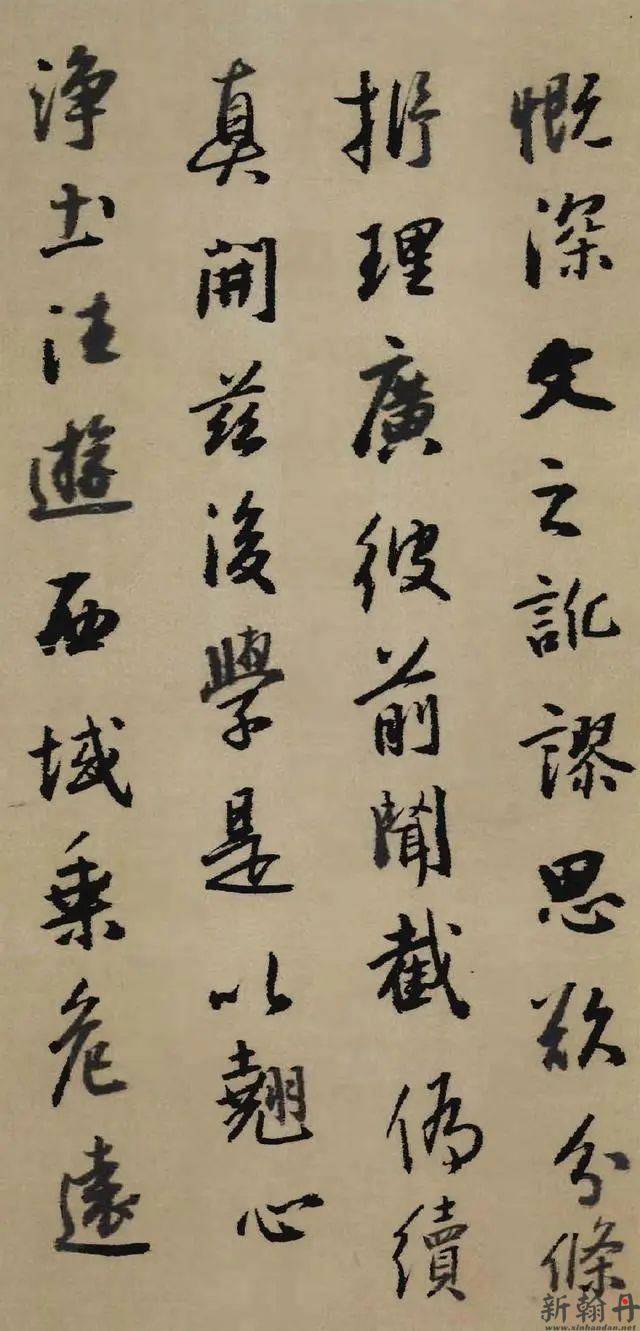 慨深文之訛謬思欲分條
析理廣彼前聞截偽續
真開兹後學是以翹心
淨土往遊西域乘危遠
新翰丹
www.xinhandan.net